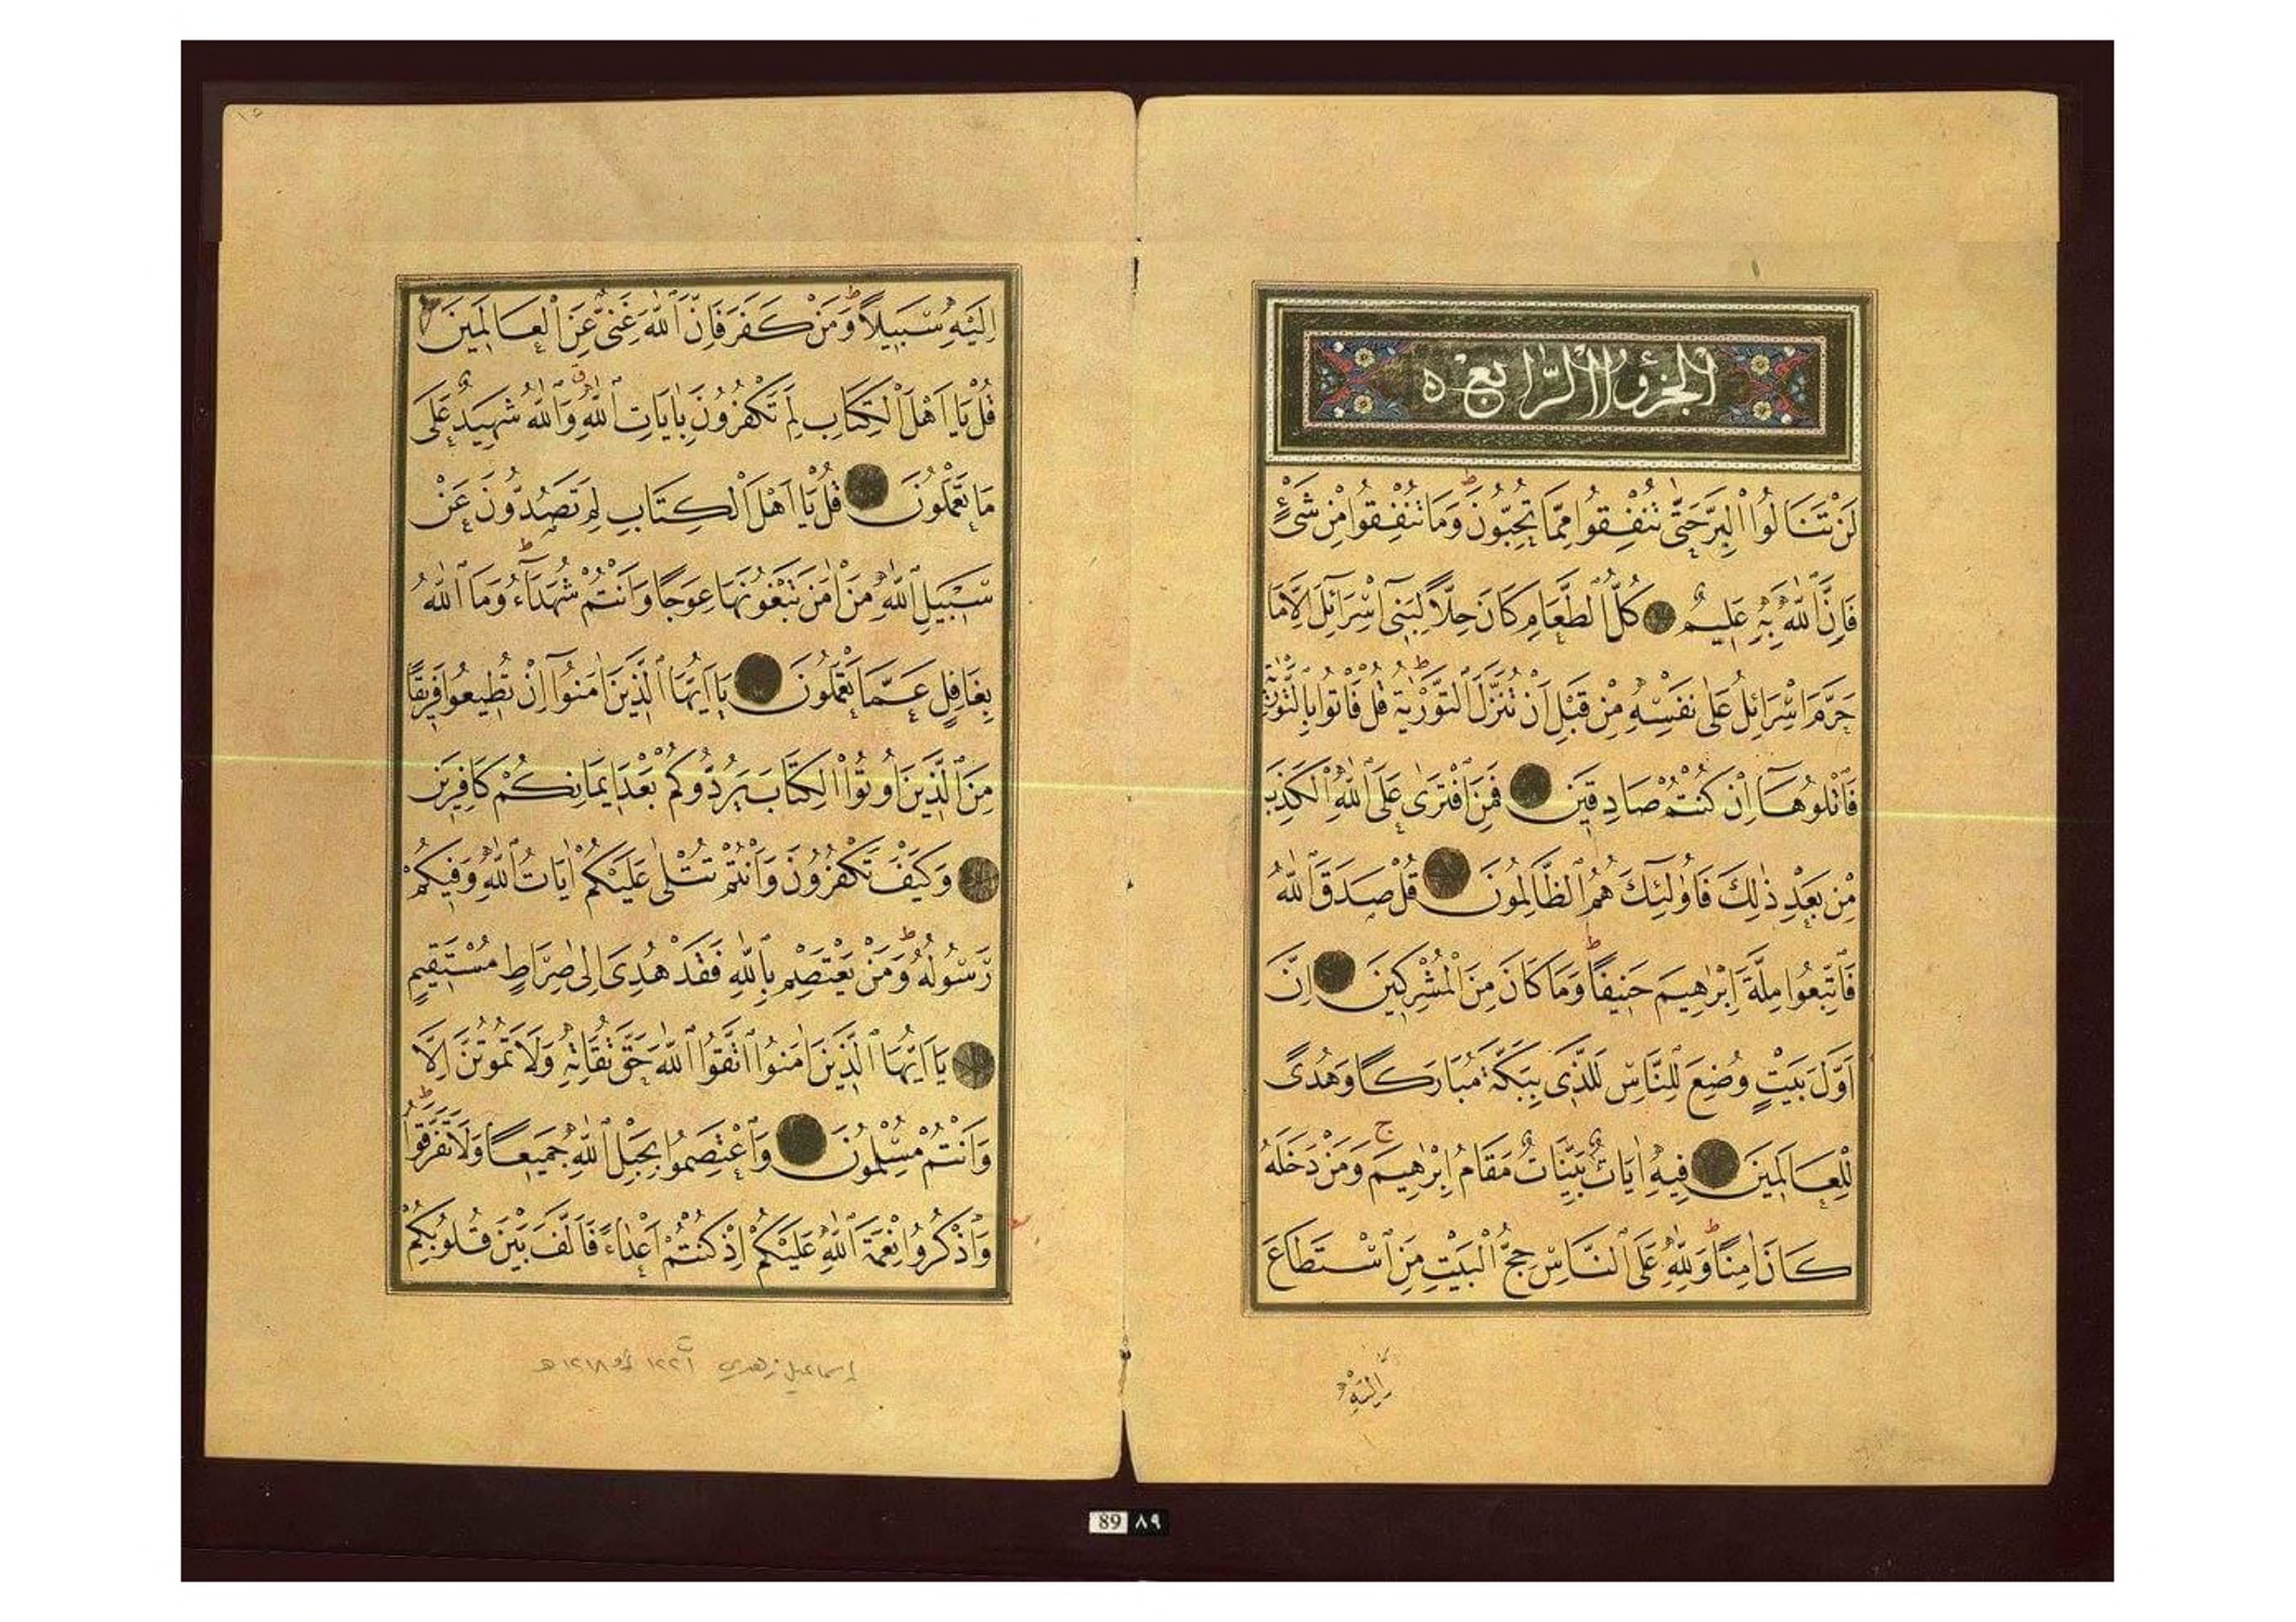 الجزؤ الرابع
لَنْ تَنَالُوا الْبِرَّ حَتّٰى تُنْفِقُوا مِمَّا تُحِبُّونَ ط وَمَا تُنْفِقُوا مِنْ شَىْءٍ
فَاِنَّ اللّٰهَ بِهِ عَلِيمٌ كُلُّ الطَّعَامِ كَانَ حِلًّا لِبَنِى اِسْرَٓائِلَ اِلَّا مَا
حَرَّمَ اِسْرَٓائِلُ عَلٰى نَفْسِهِ مِنْ قَبْلِ اَنْ تُنَزَّلَ التَّوْرٰيةُ ط قُلْ فَاْتُوا بِالتَّوْرٰيةِ
فَاتْلُوهَٓا اِنْ كُنْتُمْ صَادِقِينَ فَمَنِ افْتَرٰى عَلَى اللّٰهِ الْكَذِبَ
مِنْ بَعْدِ ذٰلِكَ فَاُولٰٓئِكَ هُمُ الظَّالِمُونَ قُلْ صَدَقَ اللّٰهُ
فَاتَّبِعُوا مِلَّةَ اِبْرٰهِيمَ حَنِيفًا ط وَمَا كَانَ مِنَ الْمُشْرِكِينَ اِنَّ
اَوَّلَ بَيْتٍ وُضِعَ لِلنَّاسِ لَلَّذِى بِبَكَّةَ مُبَارَكًا وَهُدًى
لِلْعَالَمِينَ فِيهِ اٰيَاتٌ بَيِّنَاتٌ مَقَامُ اِبْرٰهِيمَ ج وَمَنْ دَخَلَهُ
كَانَ اٰمِنًا ط وَلِلّٰهِ عَلَى النَّاسِ حِجُّ الْبَيْتِ مَنِ اسْتَطَاعَ
اِلَيْهِ
اِلَيْهِ سَبِيلًا ط وَمَنْ كَفَرَ فَاِنَّ اللّٰهَ غَنِىٌّ عَنِ الْعَالَمِينَ
قُلْ يَا اَهْلَ الْكِتَابِ لِمَ تَكْفُرُونَ بِاٰيَاتِ اللّٰهِ ق وَاللّٰهُ شَهِيدٌ عَلٰى
مَا تَعْمَلُونَ قُلْ يَا اَهْلَ الْكِتَابِ لِمَ تَصُدُّونَ عَنْ
سَبِيلِ اللّٰهِ مَنْ اٰمَنَ تَبْغُونَهَا عِوَجًا وَاَنْتُمْ شُهَدَٓاءُ ط وَمَا اللّٰهُ
بِغَافِلٍ عَمَّا تَعْمَلُونَ يَا اَيُّهَا الَّذِينَ اٰمَنُٓوا اِنْ تُطِيعُوا فَرِيقًا
مِنَ الَّذِينَ اُوتُوا الْكِتَابَ يَرُدُّوكُمْ بَعْدَ اِيمَانِكُمْ كَافِرِينَ
وَكَيْفَ تَكْفُرُونَ وَاَنْتُمْ تُتْلٰى عَلَيْكُمْ اٰيَاتُ اللّٰهِ وَفِيكُمْ
رَسُولُهُ ط وَمَنْ يَعْتَصِمْ بِاللّٰهِ فَقَدْ هُدِىَ اِلٰى صِرَاطٍ مُسْتَقِيمٍ
يَا اَيُّهَا الَّذِينَ اٰمَنُوا اتَّقُوا اللّٰهَ حَقَّ تُقَاتِهِ وَلَا تَمُوتُنَّ اِلَّا
وَاَنْتُمْ مُسْلِمُونَ وَاعْتَصِمُوا بِحَبْلِ اللّٰهِ جَمِيعًا وَلَا تَفَرَّقُوا ط
وَاذْكُرُوا نِعْمَةَ اللّٰهِ عَلَيْكُمْ اِذْ كُنْتُمْ اَعْدَاءً فَاَلَّفَ بَيْنَ قُلُوبِكُمْ
إسماعيل زهدي ت ١٢٢١ أو ١٢١٨هـ
89 ٨٩